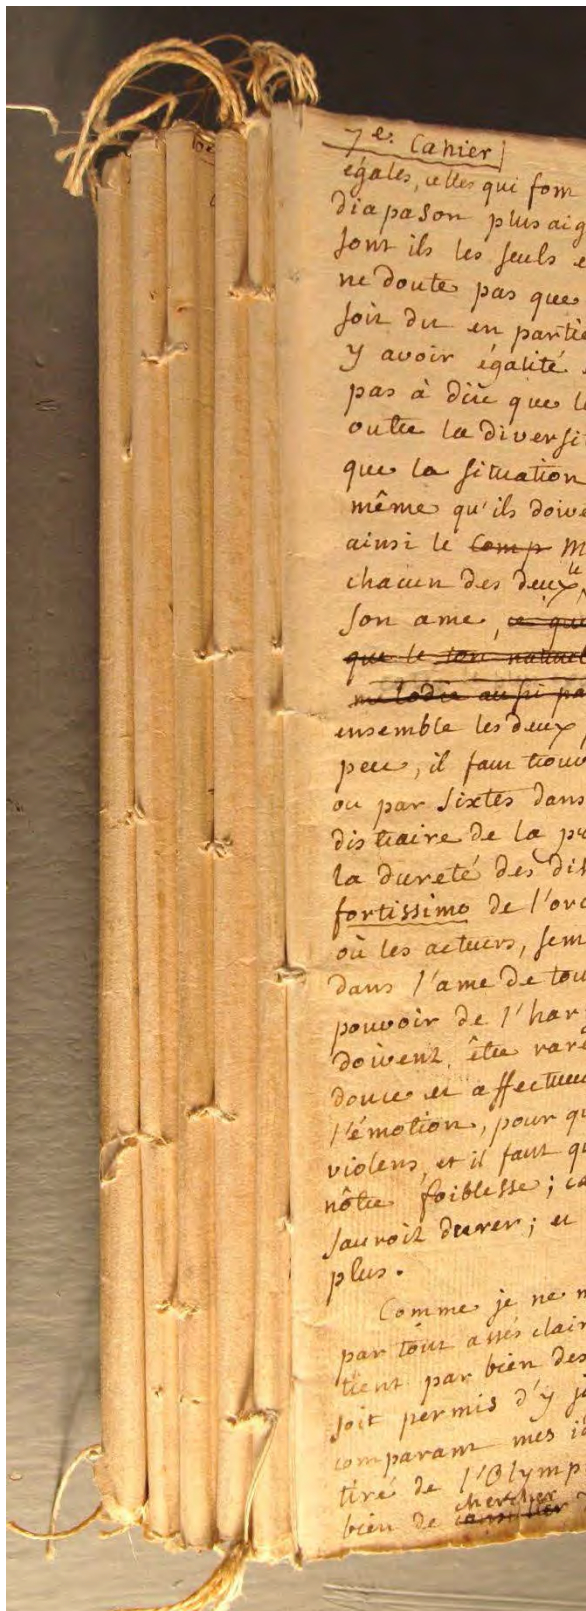 7e. Cahier
égales, celles qui fom
diapason plus aig
sont ils les seuls e
ne doute pas que
soit du en partie
y avoir égalité
pas à dire que l
outre la diversi
que la situation
même qu'ils doive
ainsi le comp M
chacun des deux, le
son ame, ce que
que le ton naturel
melodie aussi pa
ensemble les deux
peu, il faut trouv
ou par sixtes dans
distraire de la p
la dureté des dis
fortissimo de l'orc
où les acteurs, sem
dans l'ame de tou
pouvoir de l'har
doivent être rare
douce et affectueu
l'émotion, pour qu
violens, et il faut qu
nôtre foiblesse; ca
sauroit durer; et
plus.
Comme je ne m
par tout assés clair
tient par bien des
soit permis d'y jo
comparant mes id
tiré de l'Olymp
bien de chercher